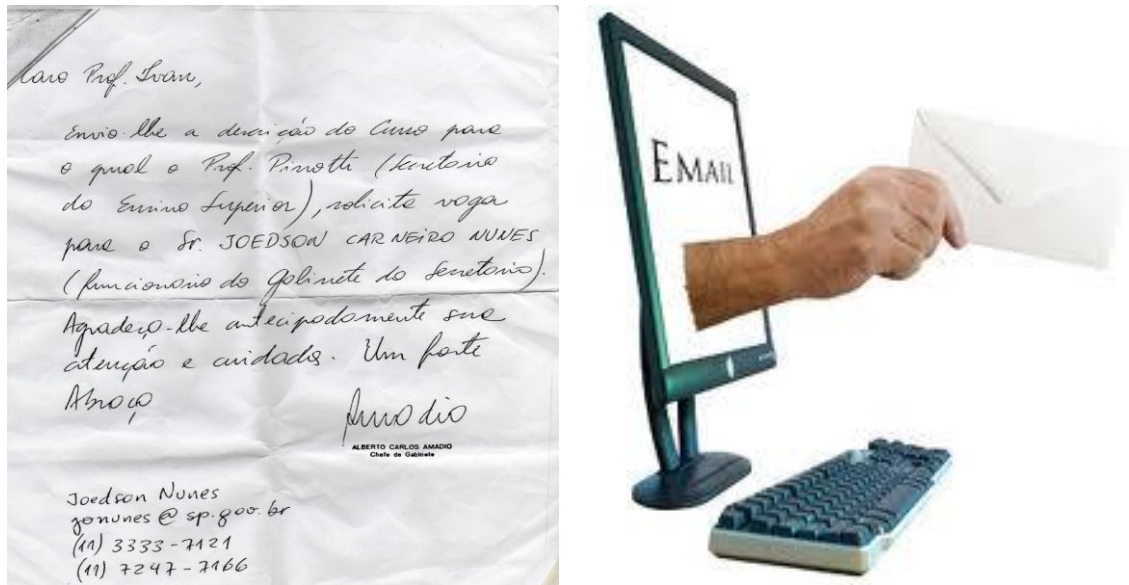 Caro Prof. Ivan,
Envio-lhe a descrição do Curso para
o qual o Prof. Pinotti (Secretario
do Ensino Superior), solicita vaga
para o Sr. JOEDSON CARNEIRO NUNES
(funcionario do Gabinete do Secretario).
Agradeço-lhe antecipadamente sua
atenção e cuidados. Um forte
Abraço
Amadio
ALBERTO CARLOS AMADIO
Chefe de Gabinete
Joedson Nunes
jonunes@sp.gov.br
(11) 3333-7121
(11) 7247-7166
EMAIL